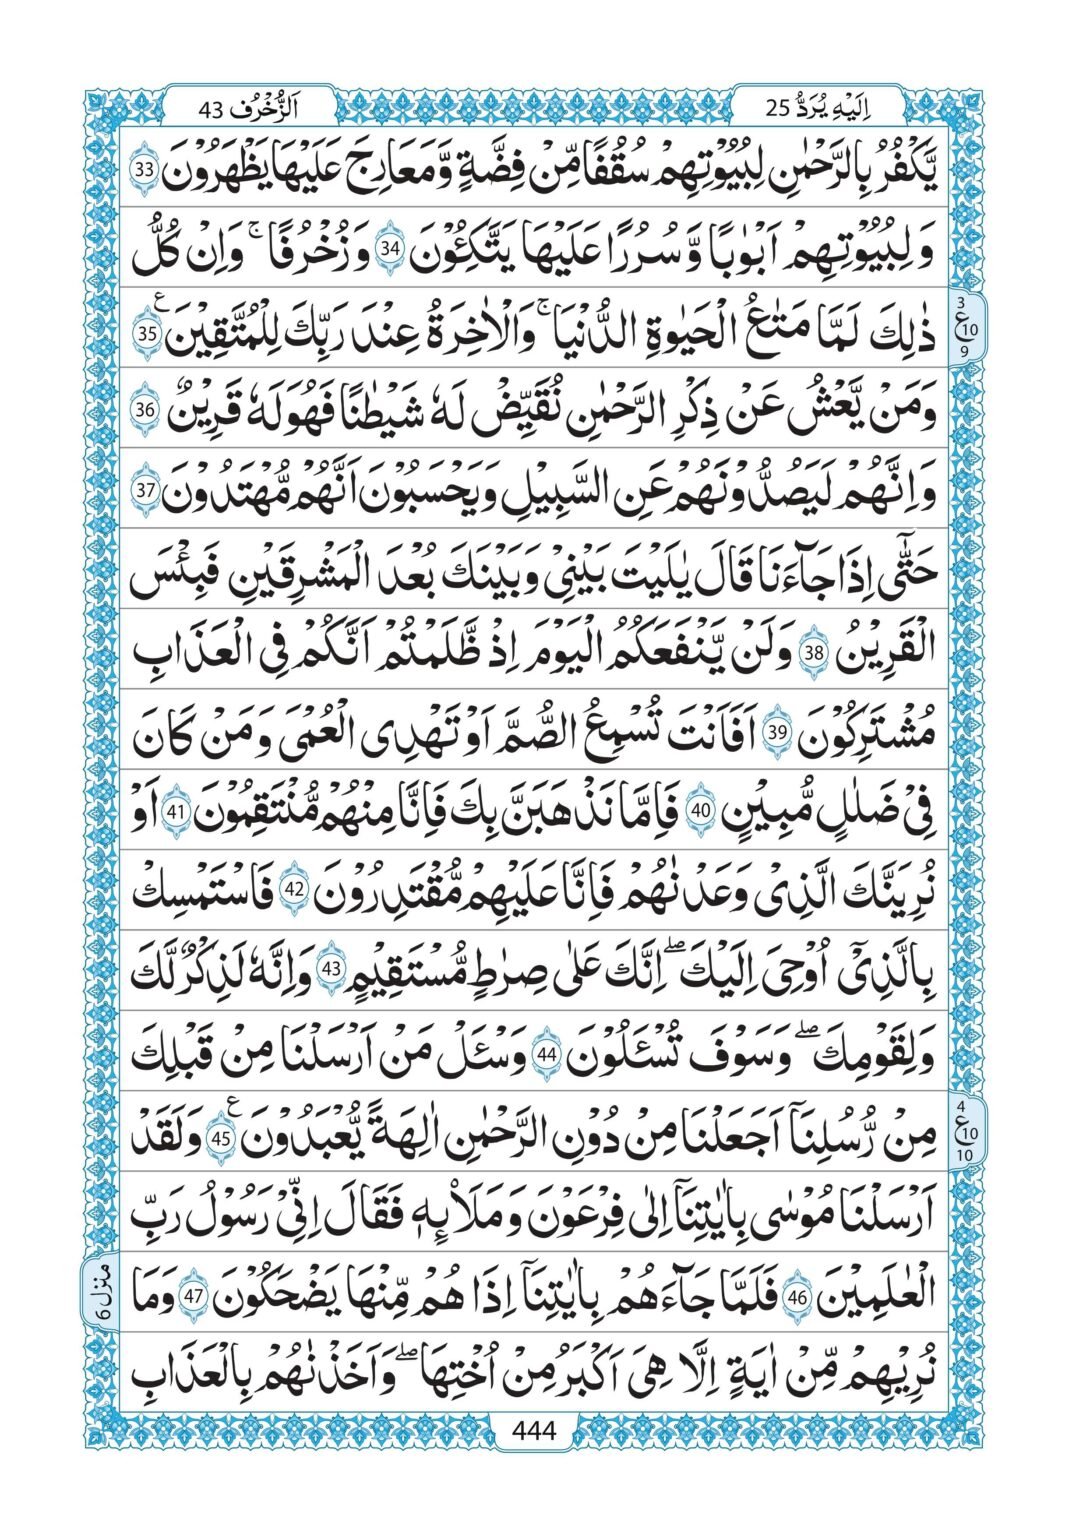 اِلَيْهِ يُرَدُّ 25
اَلزُّخْرُف 43
يَّكْفُرُ بِالرَّحْمٰنِ لِبُيُوْتِهِمْ سُقُفًا مِّنْ فِضَّةٍ وَّمَعَارِجَ عَلَيْهَا يَظْهَرُوْنَ 33
وَلِبُيُوْتِهِمْ اَبْوٰبًا وَّسُرُرًا عَلَيْهَا يَتَّكِئُوْنَ 34 وَزُخْرُفًا ۚ وَاِنْ كُلُّ
ذٰلِكَ لَمَّا مَتٰعُ الْحَيٰوةِ الدُّنْيَا ۚ وَالْاٰخِرَةُ عِنْدَ رَبِّكَ لِلْمُتَّقِيْنَ ع 35
3 ع 10 9
وَمَنْ يَّعْشُ عَنْ ذِكْرِ الرَّحْمٰنِ نُقَيِّضْ لَهٗ شَيْطٰنًا فَهُوَ لَهٗ قَرِيْنٌ 36
وَاِنَّهُمْ لَيَصُدُّوْنَهُمْ عَنِ السَّبِيْلِ وَيَحْسَبُوْنَ اَنَّهُمْ مُّهْتَدُوْنَ 37
حَتّٰٓى اِذَا جَآءَنَا قَالَ يٰلَيْتَ بَيْنِيْ وَبَيْنَكَ بُعْدَ الْمَشْرِقَيْنِ فَبِئْسَ
الْقَرِيْنُ 38 وَلَنْ يَّنْفَعَكُمُ الْيَوْمَ اِذْ ظَّلَمْتُمْ اَنَّكُمْ فِى الْعَذَابِ
مُشْتَرِكُوْنَ 39 اَفَاَنْتَ تُسْمِعُ الصُّمَّ اَوْ تَهْدِى الْعُمْىَ وَمَنْ كَانَ
فِيْ ضَلٰلٍ مُّبِيْنٍ 40 فَاِمَّا نَذْهَبَنَّ بِكَ فَاِنَّا مِنْهُمْ مُّنْتَقِمُوْنَ 41 اَوْ
نُرِيَنَّكَ الَّذِيْ وَعَدْنٰهُمْ فَاِنَّا عَلَيْهِمْ مُّقْتَدِرُوْنَ 42 فَاسْتَمْسِكْ
بِالَّذِيْٓ اُوْحِىَ اِلَيْكَ ۖ اِنَّكَ عَلٰى صِرٰطٍ مُّسْتَقِيْمٍ 43 وَاِنَّهٗ لَذِكْرٌ لَّكَ
وَلِقَوْمِكَ ۖ وَسَوْفَ تُسْـَٔلُوْنَ 44 وَسْـَٔلْ مَنْ اَرْسَلْنَا مِنْ قَبْلِكَ
مِنْ رُّسُلِنَآ اَجَعَلْنَا مِنْ دُوْنِ الرَّحْمٰنِ اٰلِهَةً يُّعْبَدُوْنَ ع 45 وَلَقَدْ
4 ع 10 10
اَرْسَلْنَا مُوْسٰى بِاٰيٰتِنَآ اِلٰى فِرْعَوْنَ وَمَلَا۟ئِهٖ فَقَالَ اِنِّيْ رَسُوْلُ رَبِّ
الْعٰلَمِيْنَ 46 فَلَمَّا جَآءَهُمْ بِاٰيٰتِنَآ اِذَا هُمْ مِّنْهَا يَضْحَكُوْنَ 47 وَمَا
منزل 6
نُرِيْهِمْ مِّنْ اٰيَةٍ اِلَّا هِىَ اَكْبَرُ مِنْ اُخْتِهَا ۖ وَاَخَذْنٰهُمْ بِالْعَذَابِ
444